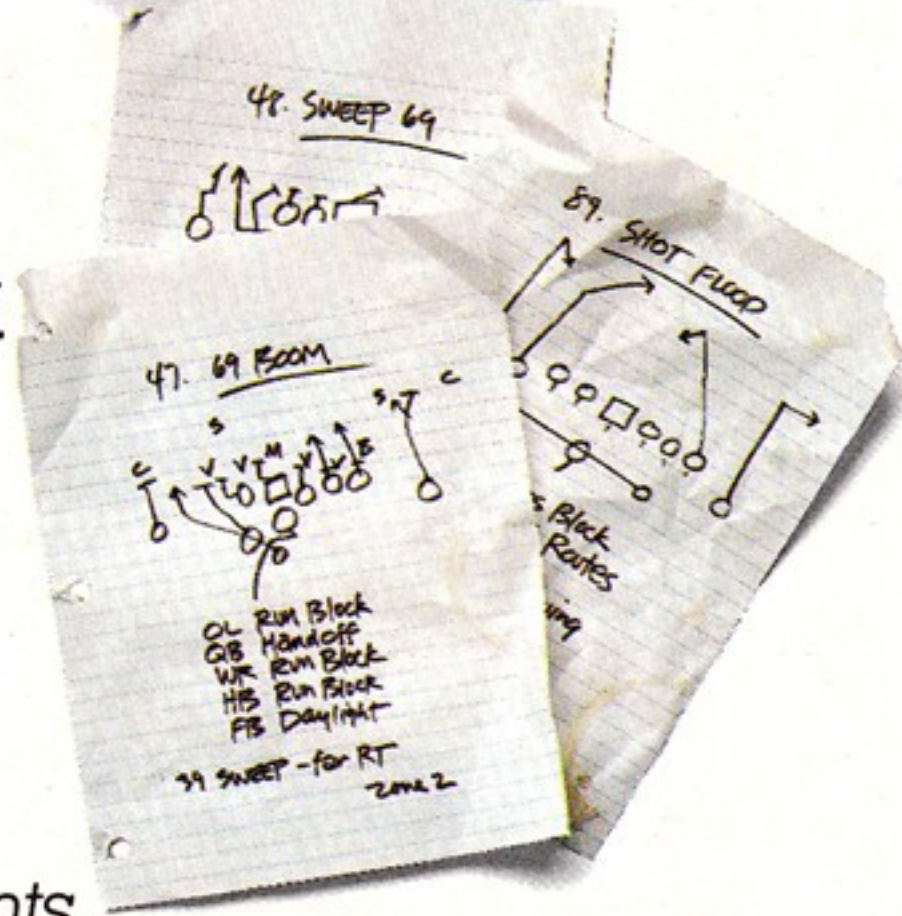 48. SWEEP 69
89. SHOT FLOOD
Block
Routes
47. 69 BOOM
C
S
S
C
V
V
M
V
V
E
OL Run Block
QB Handoff
WR Run Block
HB Run Block
FB Daylight
39 SWEEP - for RT
Zone 2